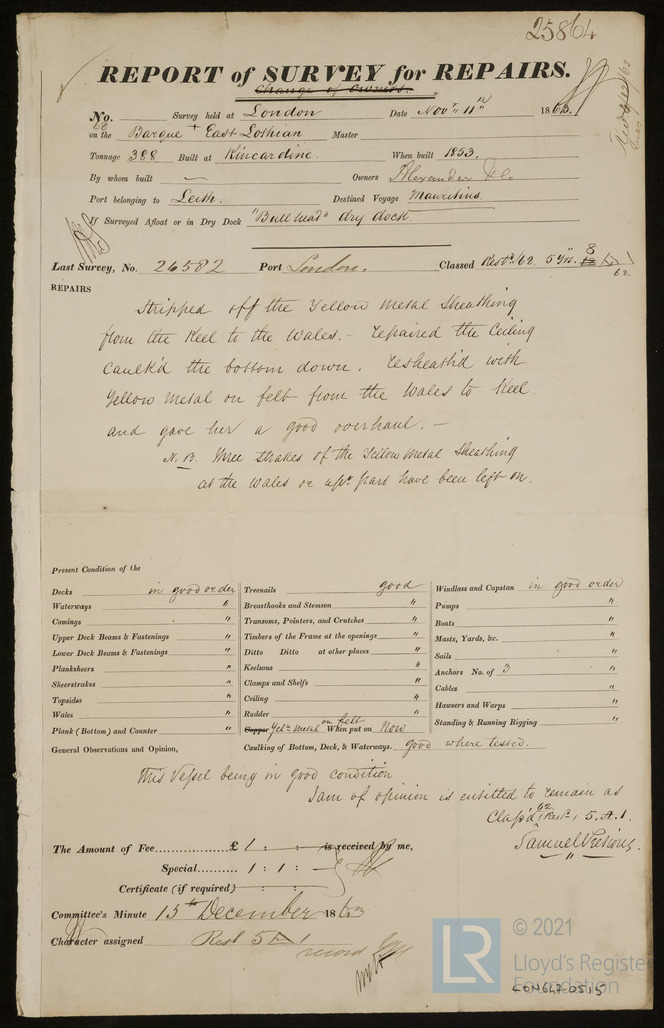 25864
REPORT of SURVEY for REPAIRS.
Change of Owners.
No. 68 Survey held at London Date Novr. 11th 1863.
on the Barque + East Lothian Master
Tonnage 388 Built at Kincardine. When built 1853.
By whom built — Owners Alexander & Co
Port belonging to Leith. Destined Voyage Mauritius.
If Surveyed Afloat or in Dry Dock "Bull head" dry dock.
Last Survey, No. 26582 Port London. Classed Restd./62. 5 Yrs. 8
62
REPAIRS
Stripped off the Yellow Metal Sheathing
from the Keel to the Wales. — repaired the Ceiling
Caulk'd the bottom down. resheath'd with
Yellow Metal on felt from the Wales to Keel
and gave her a good overhaul. —
N.B. Three Strakes of the Yellow Metal Sheathing
at the Wales or upr. part have been left on.
Present Condition of the
Decks in good order
Waterways "
Comings "
Upper Deck Beams & Fastenings "
Lower Deck Beams & Fastenings "
Planksheers "
Sheerstrakes "
Topsides "
Wales "
Plank (Bottom) and Counter "
Treenails good
Breasthooks and Stemson "
Transoms, Pointers, and Crutches "
Timbers of the Frame at the openings "
Ditto Ditto at other places "
Keelsons "
Clamps and Shelfs "
Ceiling "
Rudder "
Copper Yelw. Metal on felt When put on Now
Windlass and Capstan in good order
Pumps "
Boats "
Masts, Yards, &c. "
Sails "
Anchors No. of 3 "
Cables "
Hawsers and Warps "
Standing & Running Rigging "
General Observations and Opinion,
Caulking of Bottom, Deck, & Waterways. good where tested.
This Vessel being in good condition
I am of opinion is entitled to remain as
Class'd (Restd. 62) 5.A.1.
The Amount of Fee £ 1 : is received by me,
Special 1 : 1 : —
Certificate (if required) : :
Committee's Minute 15th December 1863
Character assigned Rest 5 A 1
record
LR
© 2021
Lloyd's Register
Foundation
LON647-0515